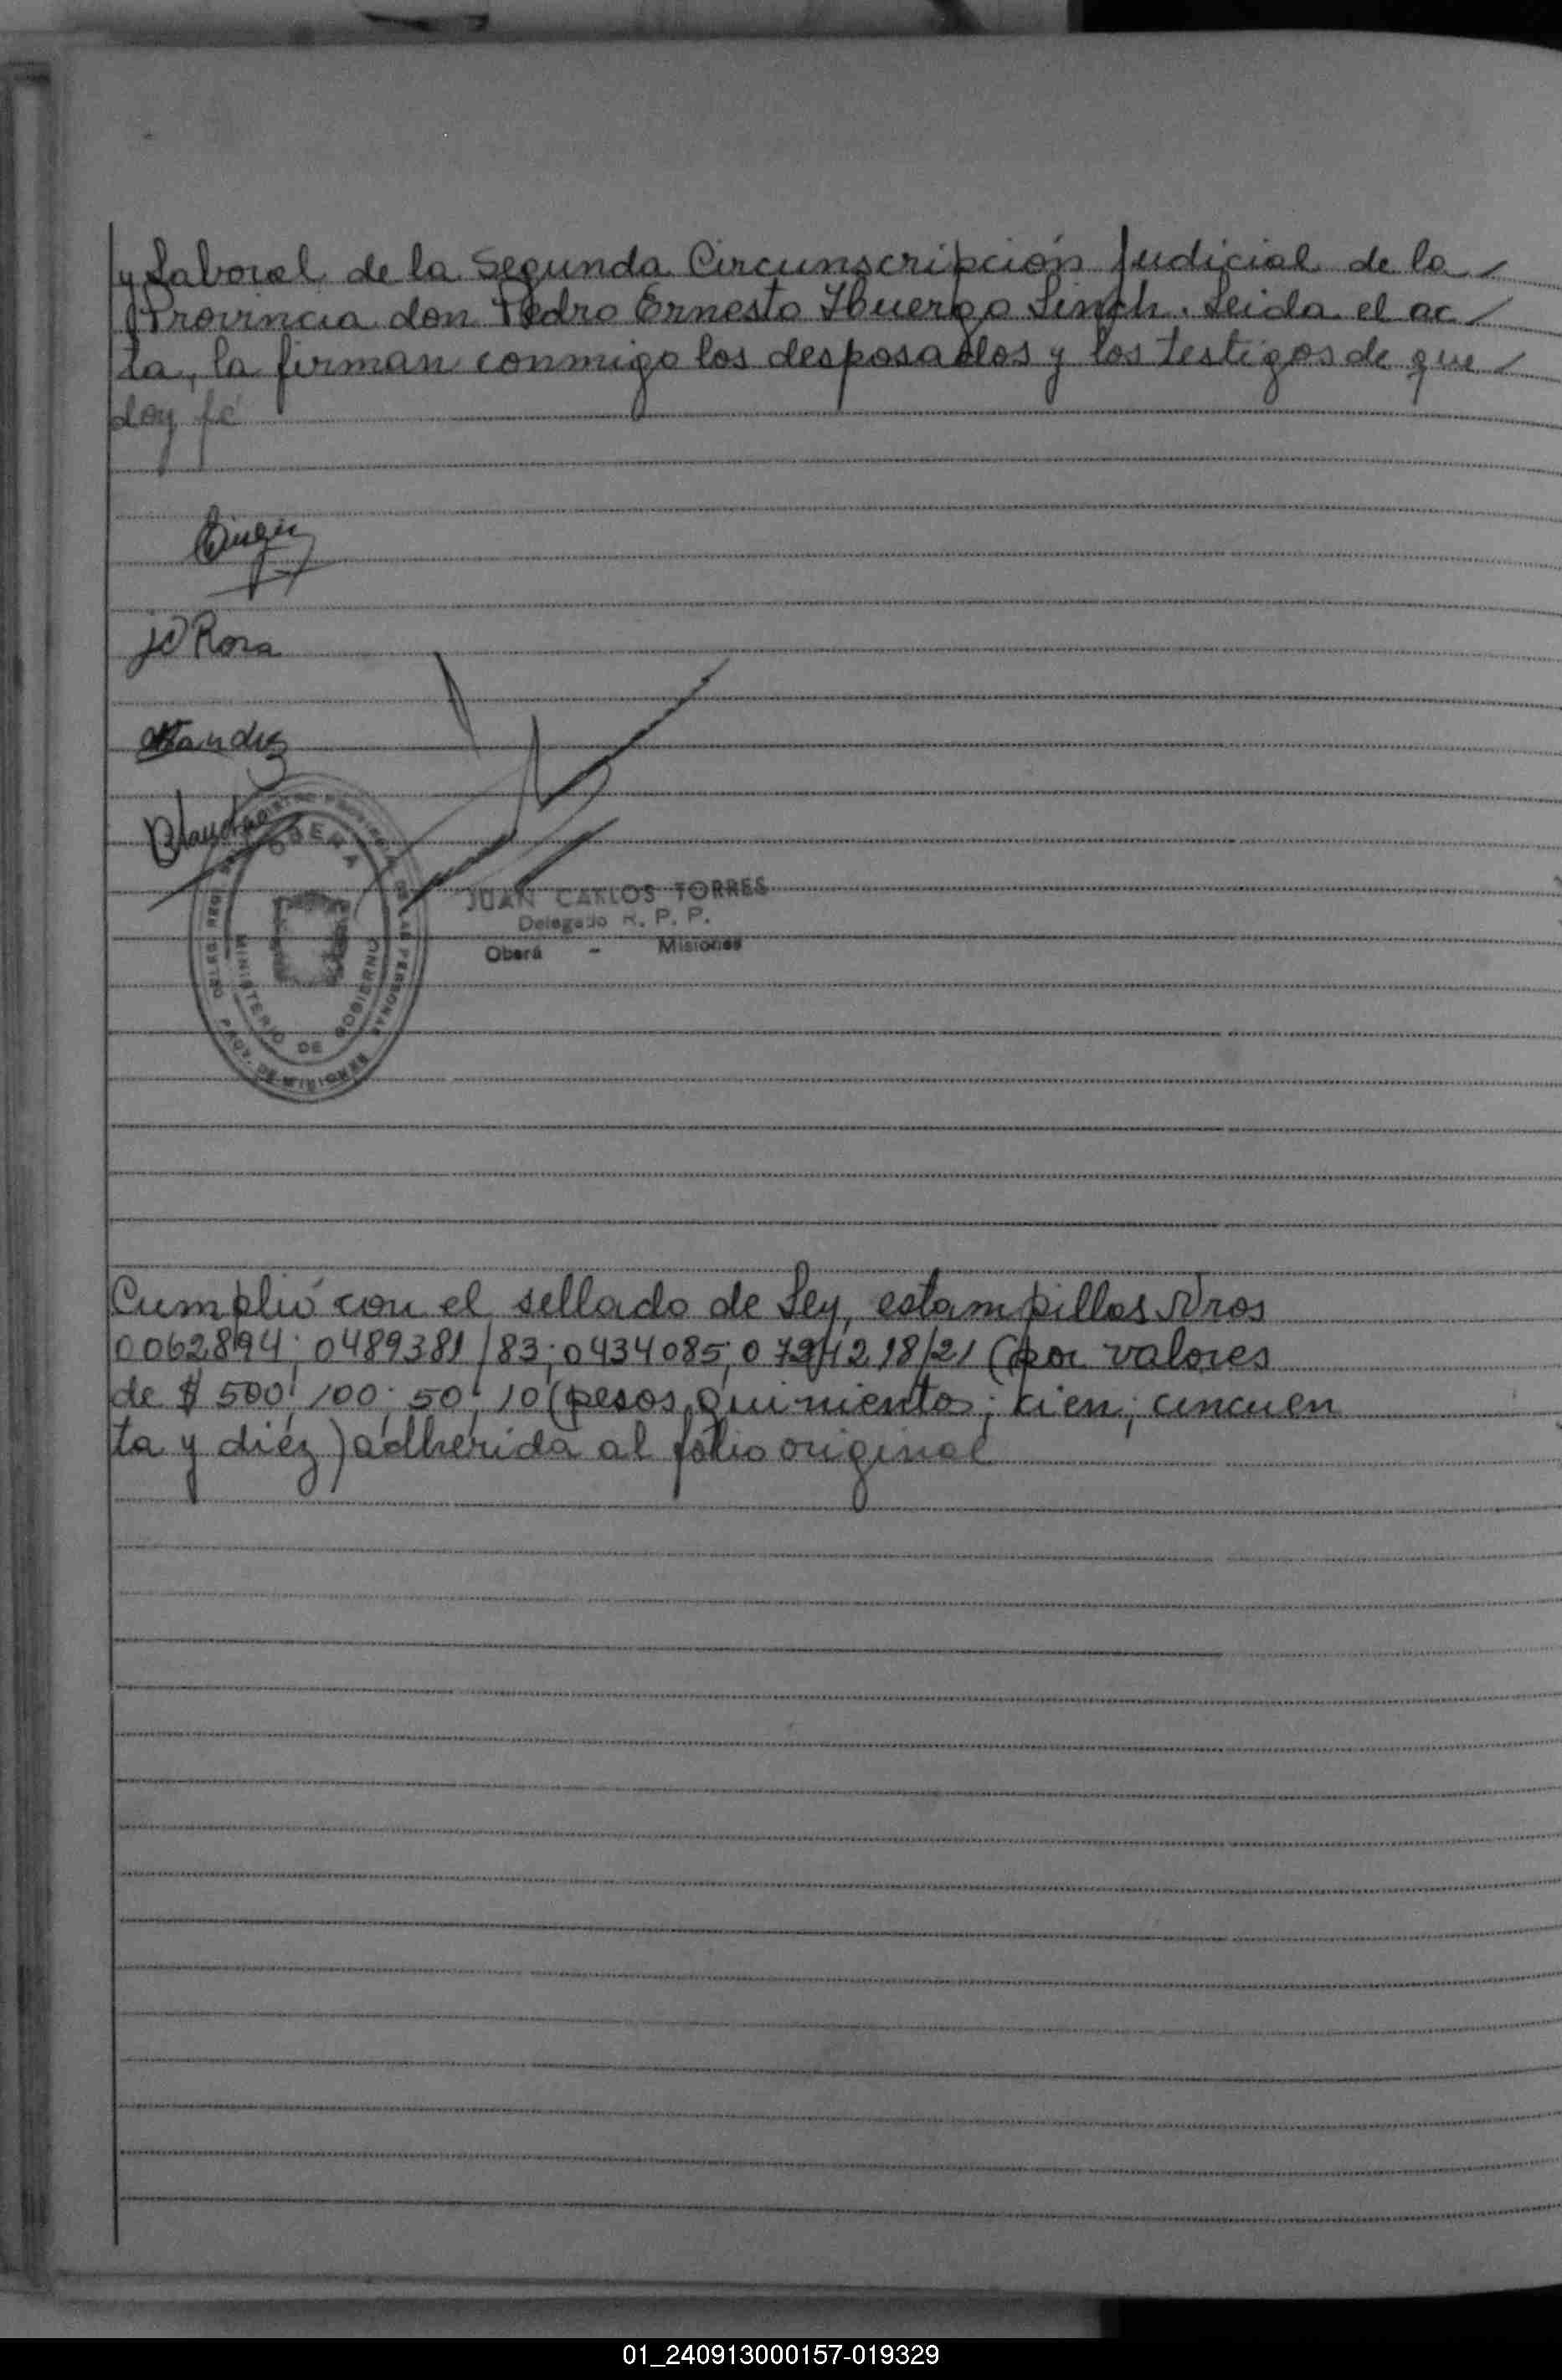 y Laboral de la Segunda Circunscripción Judicial de la /
Provincia don Pedro Ernesto Huergo Sinch. Leida el ac /
ta, la firman conmigo los desposados y los testigos de que /
doy fé
JD Rosa
OBERA
MINISTERIO DE GOBIERNO
JUAN CARLOS TORRES
Delegado R. P. P.
Oberá - Misiones
Cumplió con el sellado de Ley, estampillas Nros
0062894; 0489381/83; 0434085; 0 18/21 (por valores
de $ 500; 100; 50; 10 (pesos quinientos; cien; cincuen
ta y diéz) adherida al folio original
01_240913000157-019329